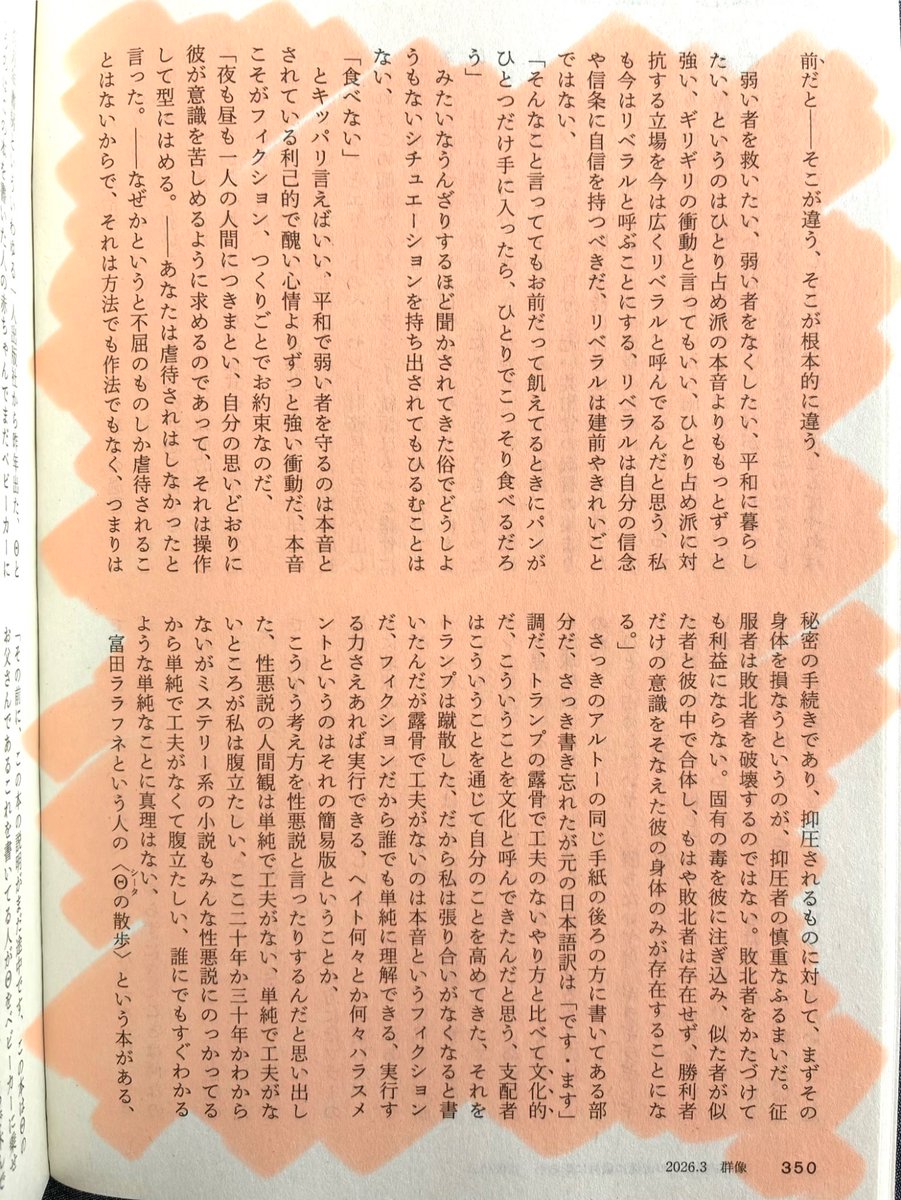 前だと――そこが違う、そこが根本的に違う、
弱い者を救いたい、弱い者をなくしたい、平和に暮らし
たい、というのはひとり占め派の本音よりももっとずっと
強い、ギリギリの衝動と言ってもいい、ひとり占め派に対
抗する立場を今は広くリベラルと呼んでるんだと思う、私
も今はリベラルと呼ぶことにする、リベラルは自分の信念
や信条に自信を持つべきだ、リベラルは建前やきれいごと
ではない、
「そんなこと言っててもお前だって飢えてるときにパンが
ひとつだけ手に入ったら、ひとりでこっそり食べるだろ
う」
みたいなうんざりするほど聞かされてきた俗でどうしよ
うもないシチュエーションを持ち出されてもひるむことは
ない、
「食べない」
とキッパリ言えばいい、平和で弱い者を守るのは本音と
されている利己的で醜い心情よりずっと強い衝動だ、本音
こそがフィクション、つくりごとでお約束なのだ、
「夜も昼も一人の人間につきまとい、自分の思いどおりに
彼が意識を苦しめるように求めるのであって、それは操作
して型にはめる。――あなたは虐待されはしなかったと
言った。――なぜかというと不屈のものしか虐待されるこ
とはないからで、それは方法でも作法でもなく、つまりは
秘密の手続きであり、抑圧されるものに対して、まずその
身体を損なうというのが、抑圧者の慎重なふるまいだ。征
服者は敗北者を破壊するのではない。敗北者をかたづけて
も利益にならない。固有の毒を彼に注ぎ込み、似た者が似
た者と彼の中で合体し、もはや敗北者は存在せず、勝利者
だけの意識をそなえた彼の身体のみが存在することにな
る。」
さっきのアルトーの同じ手紙の後ろの方に書いてある部
分だ、さっき書き忘れたが元の日本語訳は「です・ます」
調だ、トランプの露骨で工夫のないやり方と比べて文化的
だ、こういうことを文化と呼んできたんだと思う、支配者
はこういうことを通じて自分のことを高めてきた、それを
トランプは蹴散した、だから私は張り合いがなくなると書
いたんだが露骨で工夫がないのは本音というフィクション
だ、フィクションだから誰でも単純に理解できる、実行す
る力さえあれば実行できる、ヘイト何々とか何々ハラスメ
ントというのはそれの簡易版ということか、
こういう考え方を性悪説と言ったりするんだと思い出し
た、性悪説の人間観は単純で工夫がない、単純で工夫がな
いところが私は腹立たしい、ここ二十年か三十年かわから
ないがミステリー系の小説もみんな性悪説にのっかってる
から単純で工夫がなくて腹立たしい、誰にでもすぐわかる
ような単純なことに真理はない、
富田ララフネという人の〈Θの散歩〉という本がある、
シータ
2026.3 群像 350